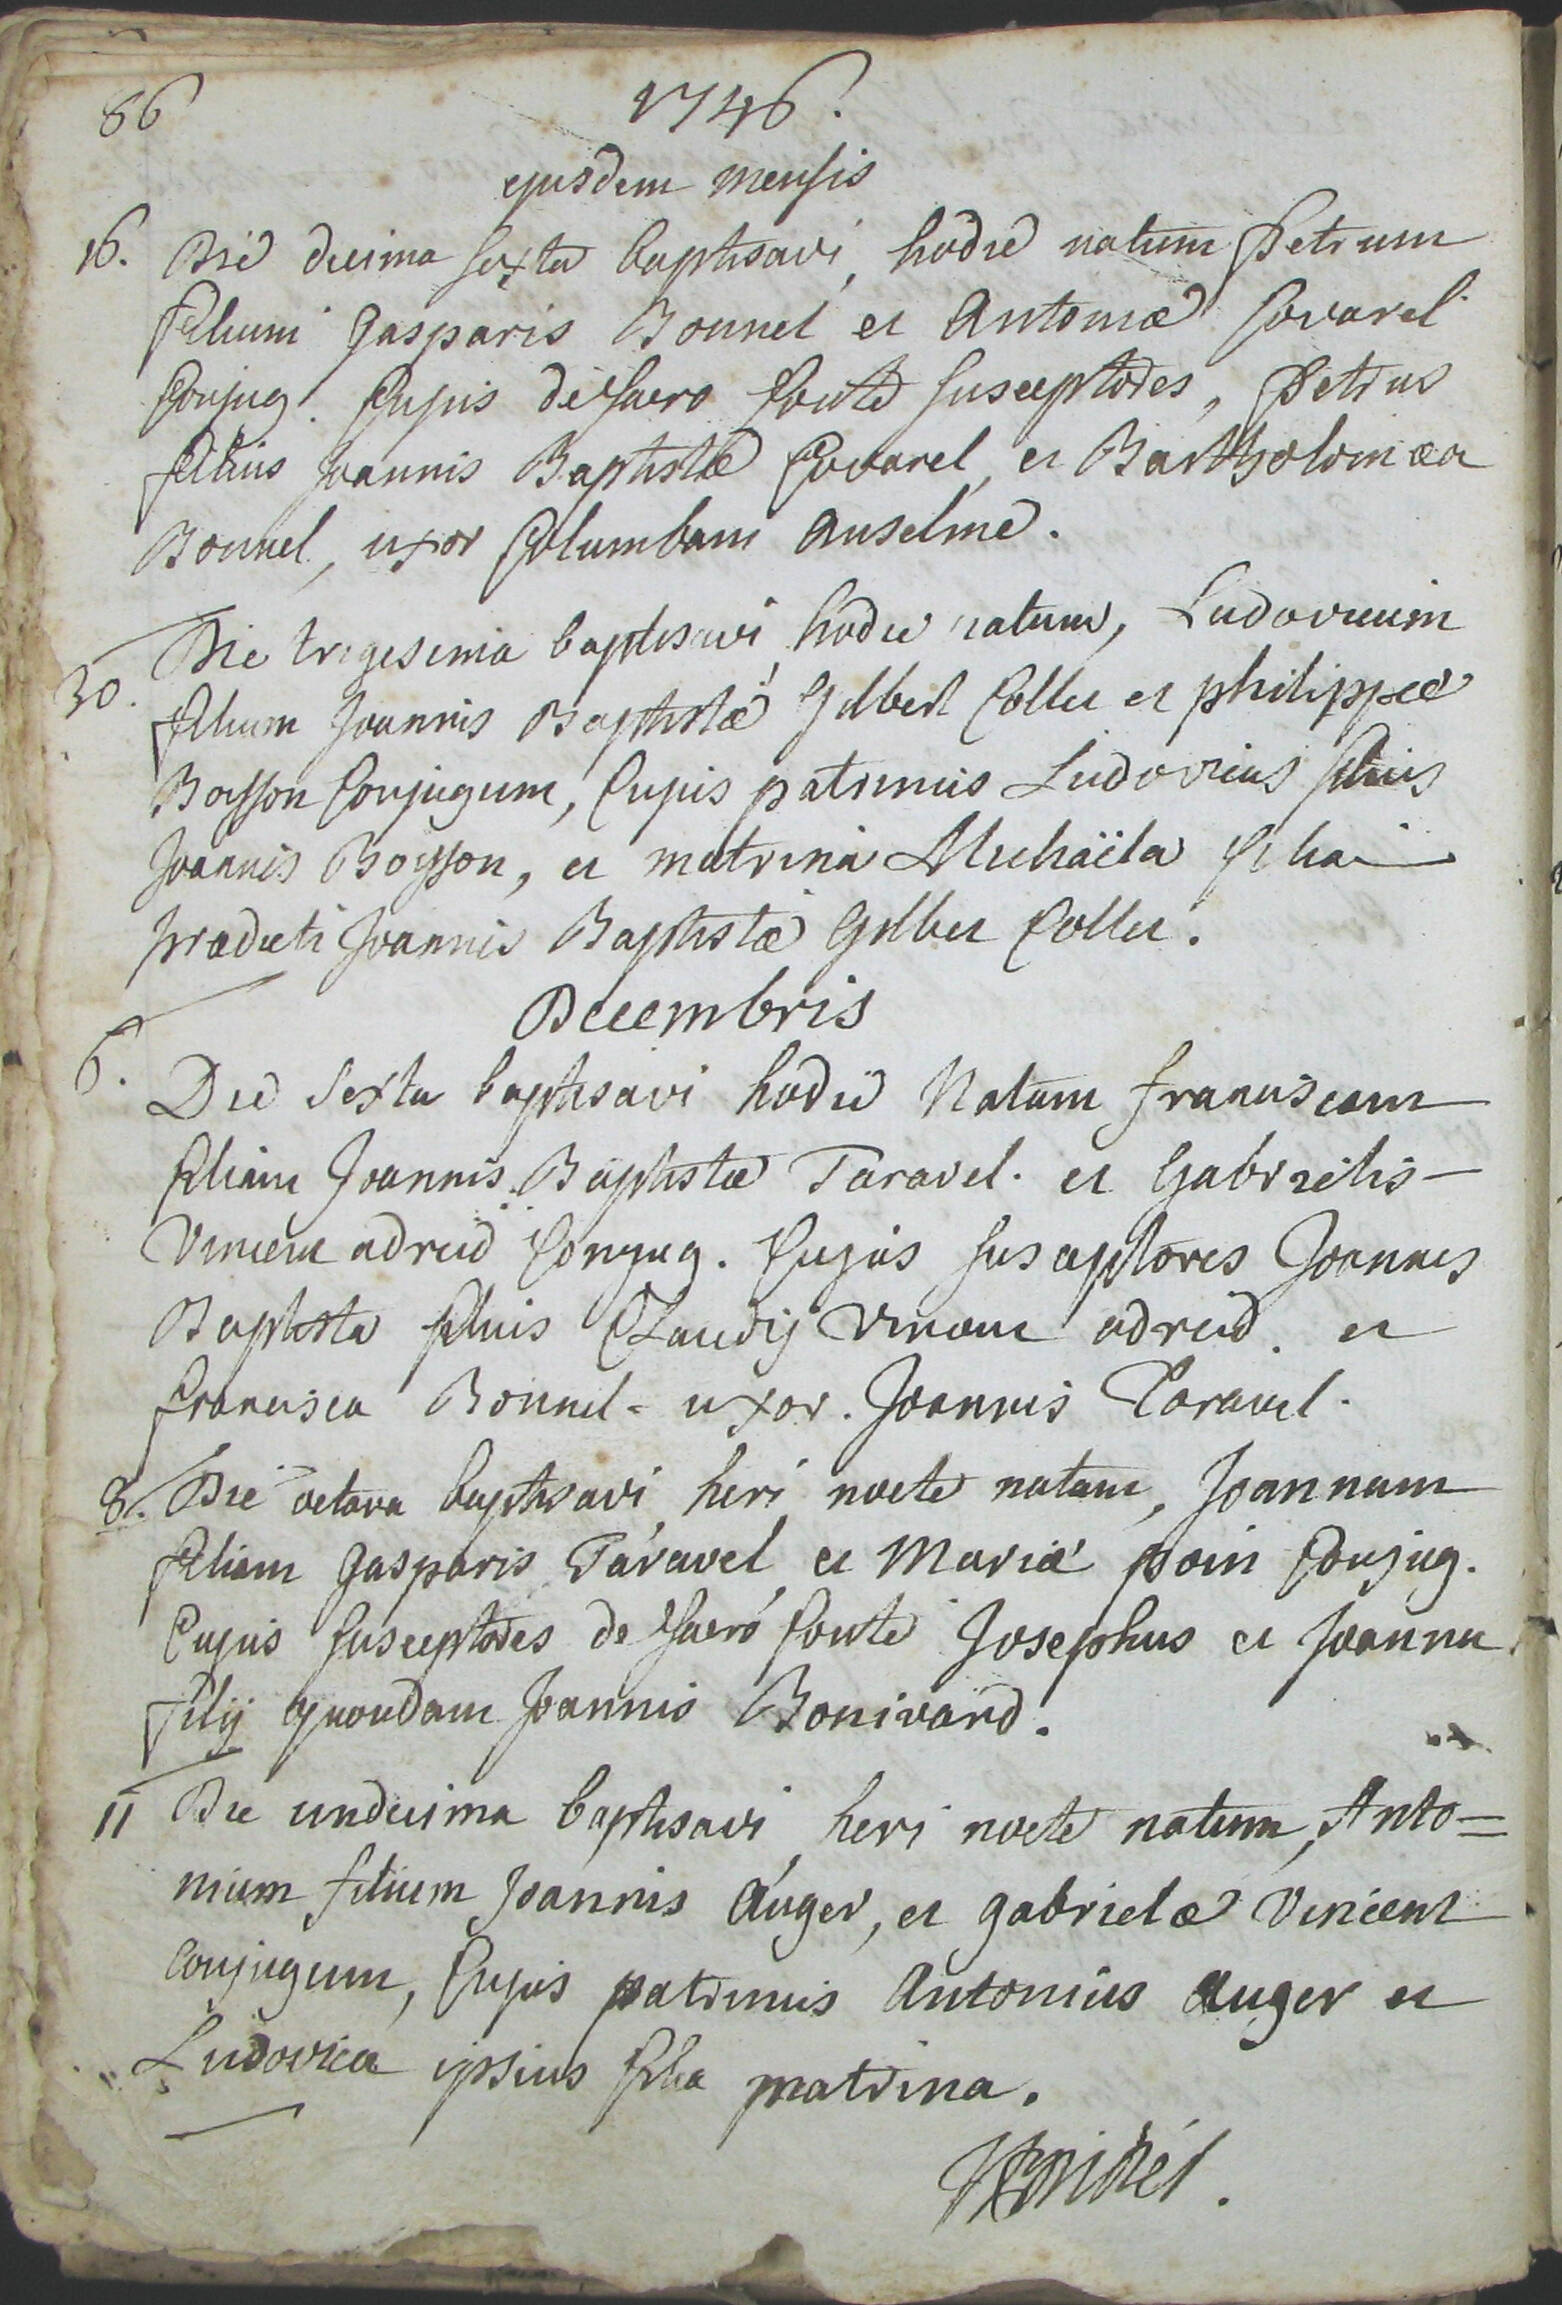 86
1746.
ejusdem mensis
16. Die decima sexta baptisavi, hodie natum Petrum
filium Gasparis Bonnel et Antoniæ Covarel
Conjug. Cujus de sacro fonte susceptores, Petrus
filius Joannis Baptistæ Covarel, et Bartholomæa
Bonnel, uxor Columbani Anselme.
30. Die trigesima baptisavi, hodie natum, Ludovicum
filium Joannis Baptistæ Gilbert Collet et philippæ
Boysson Conjugum, Cujus patrinus Ludovicus filius
Joannis Boysson, et matrina Michaëla filia
prædicti Joannis Baptistæ Gilbert Collet.
Decembris
6. Die sexta baptisavi hodie Natam franciscam
filiam Joannis Baptistæ Taravel. et Gabrielis
Vincent adreid Conjug. Cujus susceptores Joannes
Baptista filius Claudij Vincent adreid. et
francisca Bonnel - uxor. Joannis Taravel.
8. Die octava baptisavi, heri nocte natam, Joannam
filiam Gasparis Taravel, et Mariæ poin Conjug.
Cujus susceptores de sacro fonte Josephus et Joanna
filij quondam Joannis Bonivard.
11 Die undecima baptisavi, heri nocte natum, Anto=
nium filium Joannis Auger, et gabrielæ Vincent
conjugum, Cujus patrinus Antonius Auger et
Ludovica ipsius filia matrina.